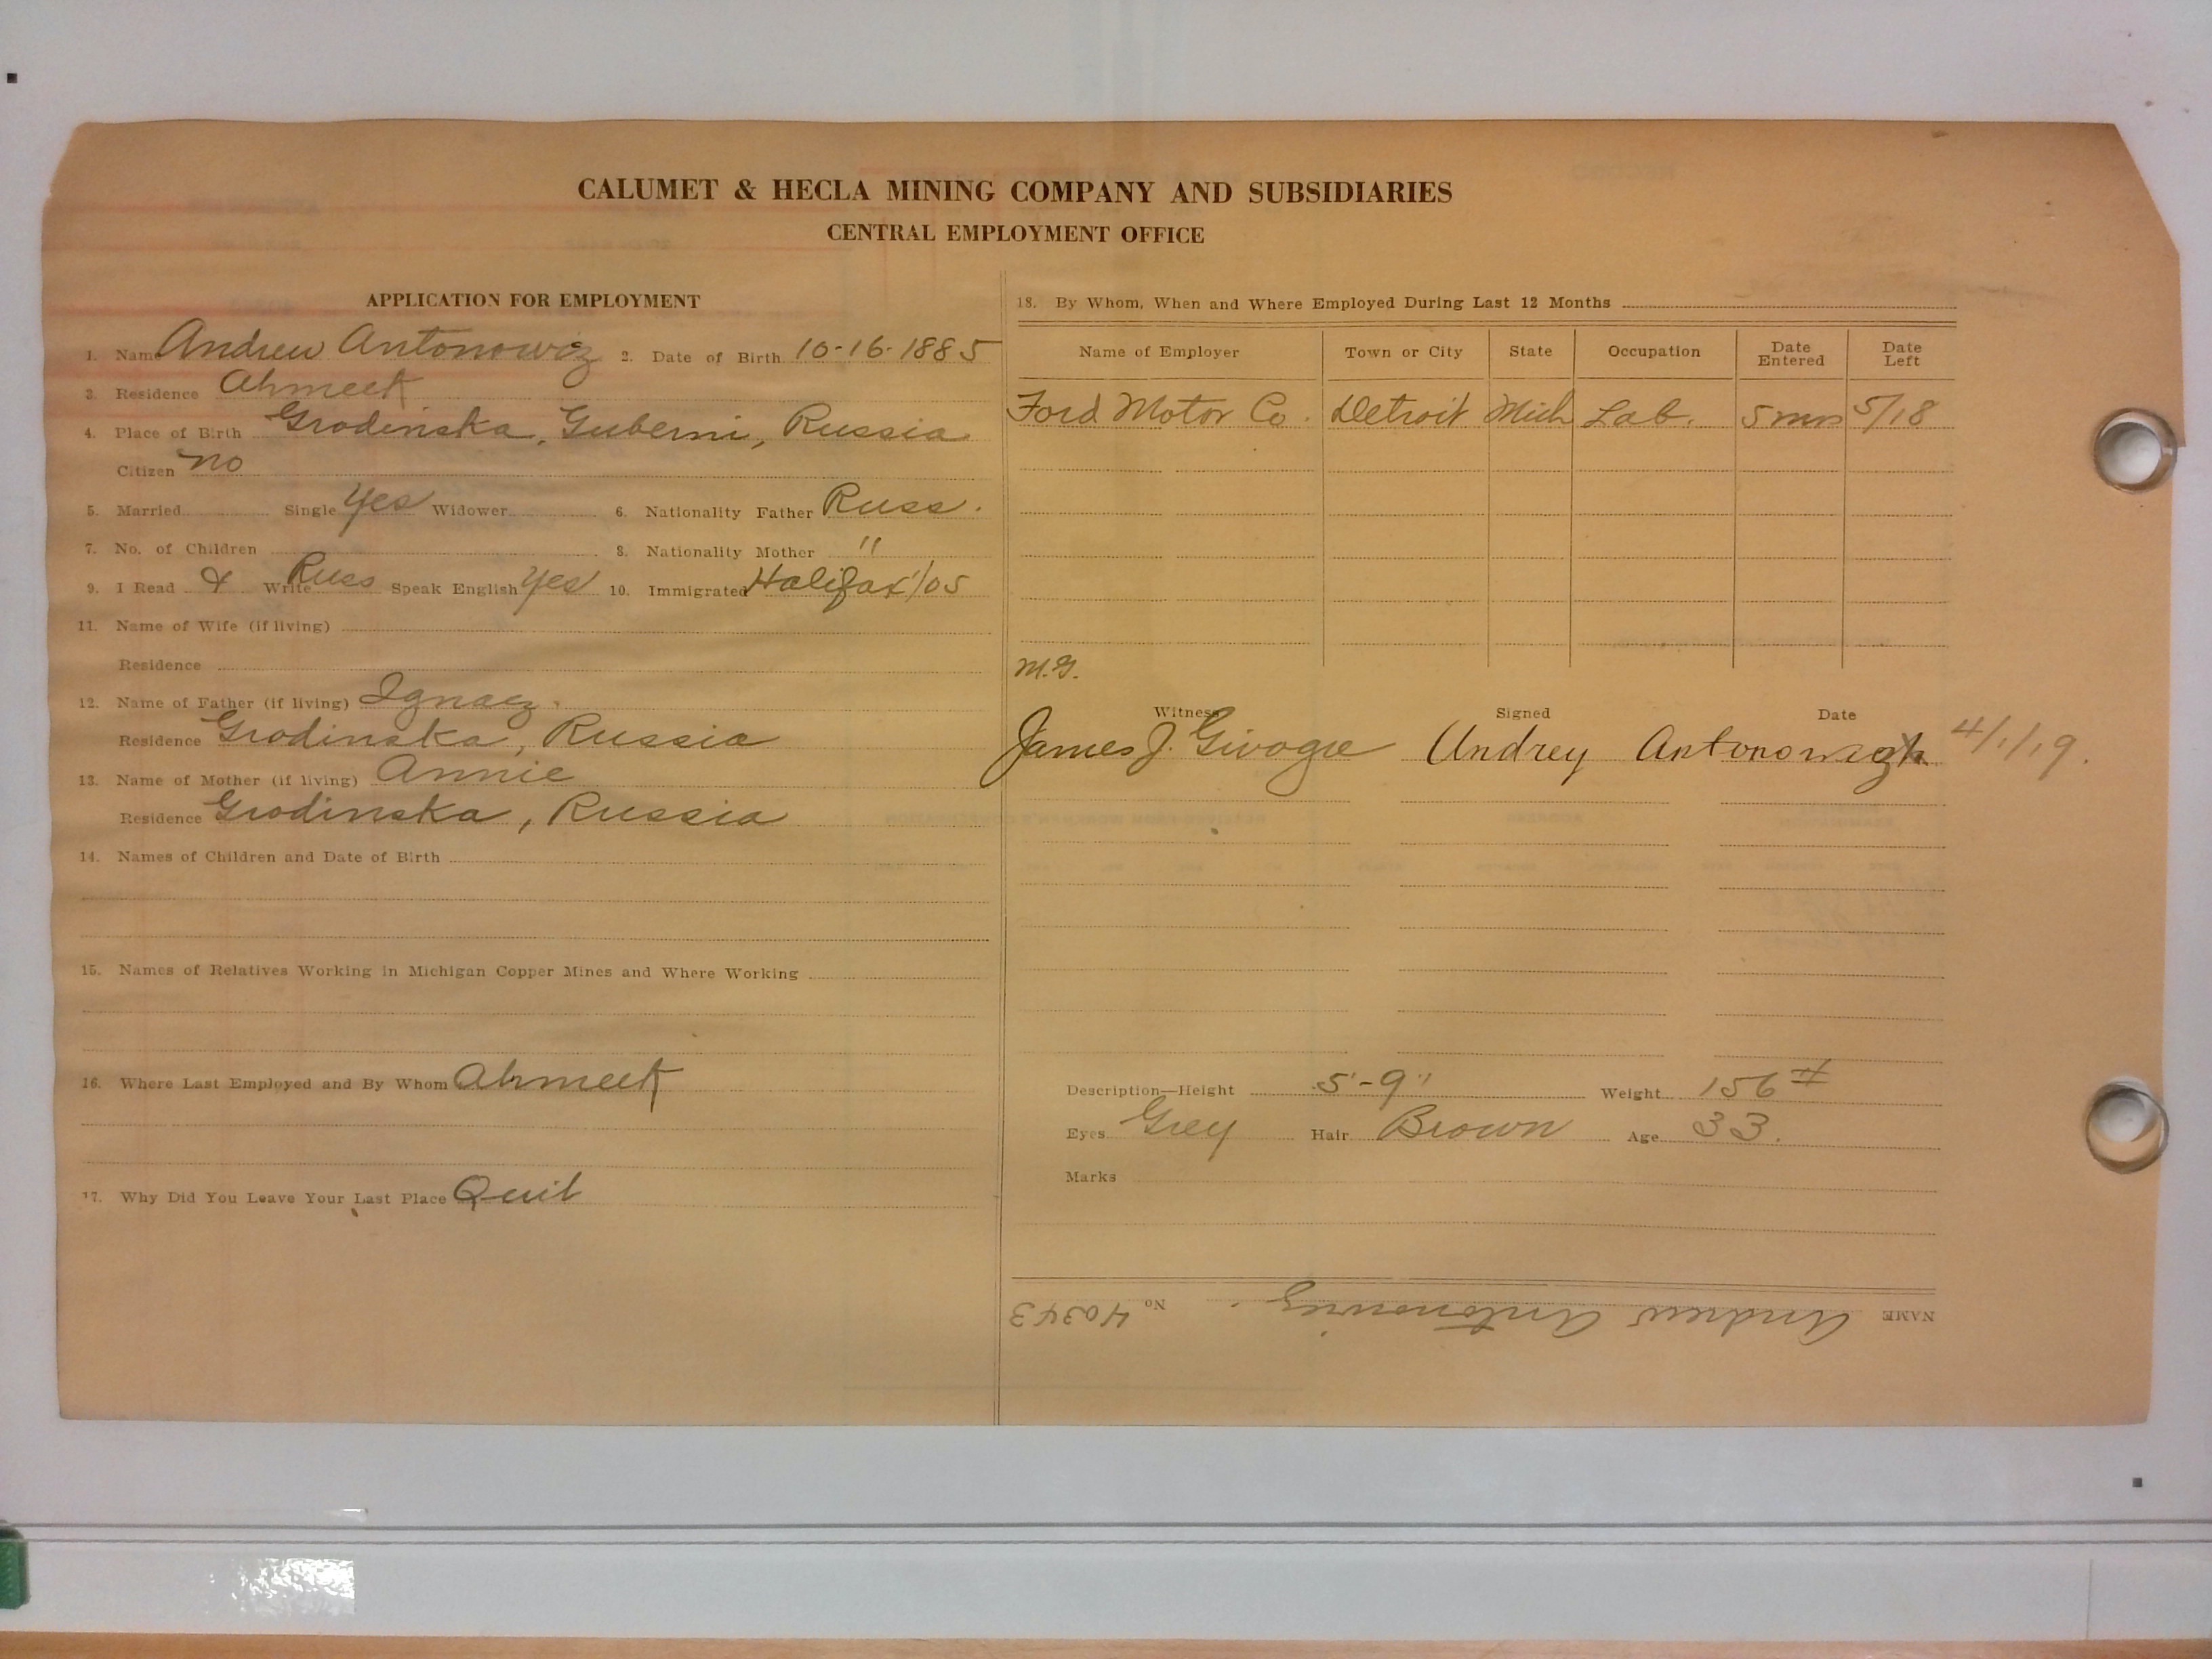 CALUMET & HECLA MINING COMPANY AND SUBSIDIARIES
CENTRAL EMPLOYMENT OFFICE
APPLICATION FOR EMPLOYMENT
1. Name Andrew Antonowiz 2. Date of Birth 10-16-1885
3. Residence Ahmeek
4. Place of Birth Grodinska, Guberni, Russia
Citizen no
5. Married Single Yes Widower 6. Nationality Father Russ.
7. No. of Children 8. Nationality Mother "
9. I Read & Write Russ Speak English Yes 10. Immigrated Halifax/05
11. Name of Wife (if living)
Residence
12. Name of Father (if living) Ignacz.
Residence Grodinska, Russia
13. Name of Mother (if living) Annie
Residence Grodinska, Russia
14. Names of Children and Date of Birth
15. Names of Relatives Working in Michigan Copper Mines and Where Working
16. Where Last Employed and By Whom Ahmeek
17. Why Did You Leave Your Last Place Quit
18. By Whom, When and Where Employed During Last 12 Months
Name of Employer Town or City State Occupation Date Entered Date Left
Ford Motor Co. Detroit Mich Lab. 5 mos 5/18
M.G.
Witness Signed Date
James J. Andrey 4/1/19.
Description—Height 5'-9" Weight 156#
Eyes Grey Hair Brown Age 33.
Marks
NAME Andrew Antonowiz. No 40343